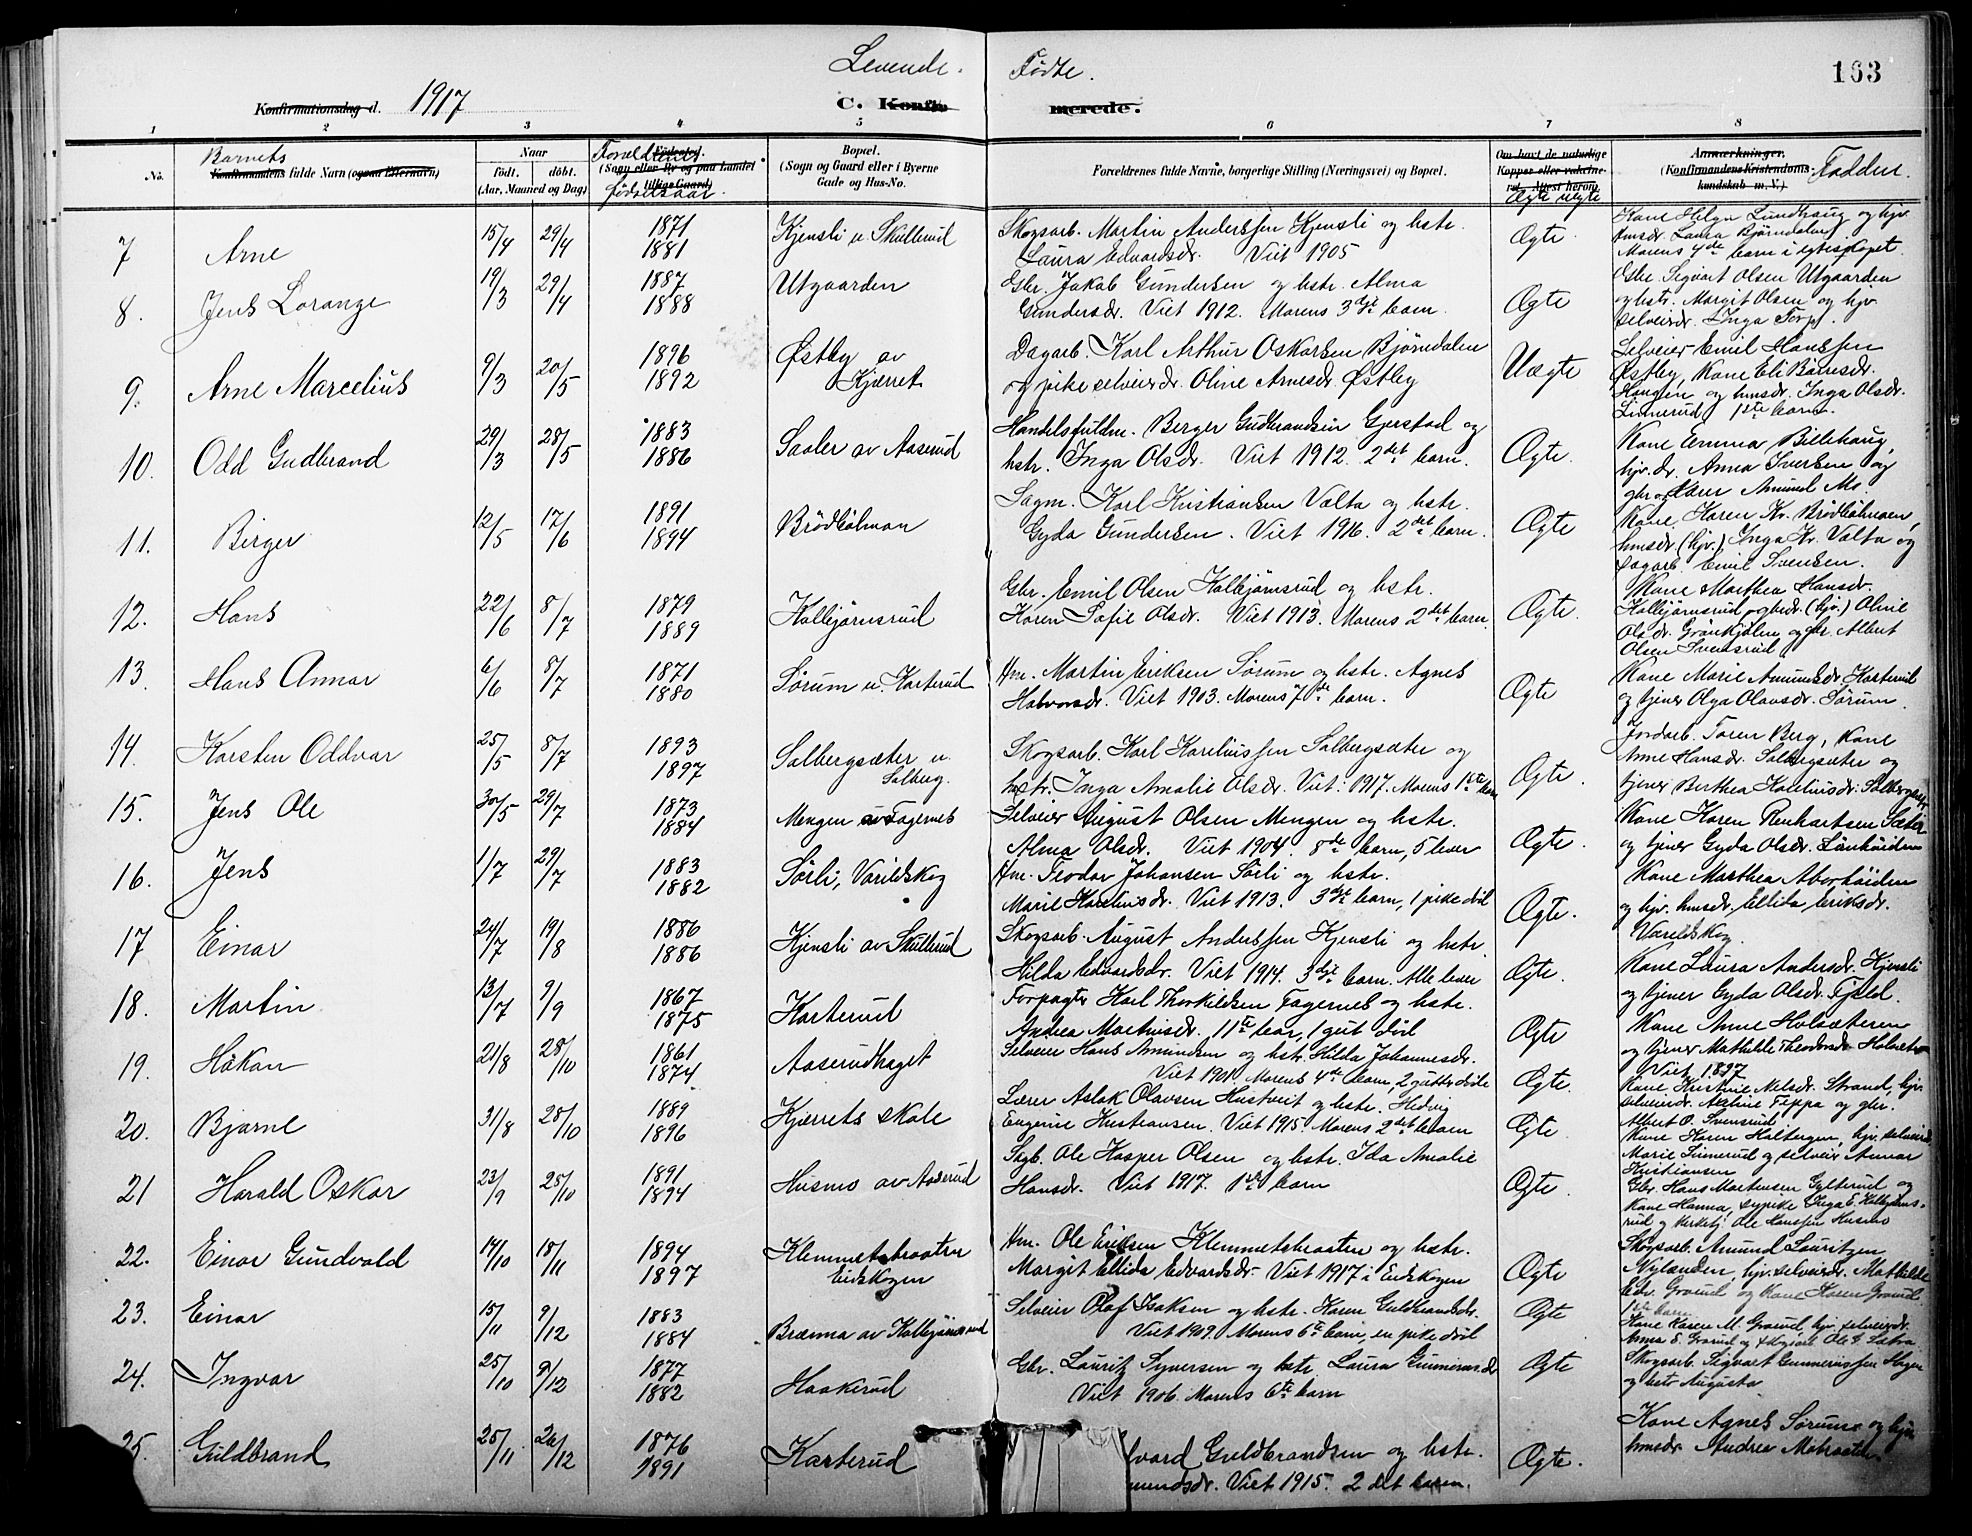 Levende. Födte.
163
Konfirmationsdag d. 1917
C. Konfir merede.
1 2 3 4 5 6 7 8
No.
Barnets
Konfirmandens fulde Navn (ogsaa Efternavn)
Naar
født. døbt.
(Aar, Maaned og Dag)
Forældrenes
Fødested.
(Sogn eller By og paa Landet
tillige Gaard)
födselsaar
Bopæl.
(Sogn og Gaard eller i Byerne
Gade og Hus-No.
Forældrenes fulde Navne, borgerlige Stilling (Næringsvei) og Bopæl.
Om havt de naturlige
Kopper eller vaccine-
ret. Attest herom.
Ægte uegte
Anmærkninger.
(Konfirmandens Kristendoms-
kundskab m. V.)
Faddere.
7 Arne 15/4 29/4 1871 1881 Kjensli u. Skullerud
Skogsarb. Martin Anderssen Kjensli og hstr.
Laura Edvardsdr. Viet 1905
Ægte.
Kone Helga Lundhaug og hjv.
hmsdr. Laura Björndalen
Morens 4de barn i egteskapet
8. Jens Lorange 19/3 29/4 1887 1888 Utgaarden
Gbr. Jakob Gundersen og hstr. Alma
Gundersdr. Viet 1912. Morens 3dje barn.
Ægte
Gbr. Sigvart Olsen Utgaarden
og hstr. Margit Olsen og hjv.
selveierdr. Inga Torp.
9. Arne Marcelius 9/3 20/5 1896 1892 Østby av Kjærret
Dagarb. Karl Arthur Oskarsen Björndalen
og pike selveierdr. Oline Arnesdr. Østby
Uægte
Selveier Emil Hanssen
Østby, Kone Eli Börresdr.
Haugen og hmsdr. Inga Olsdr.
Linnerud 1ste barn.
10. Odd Gudbrand 29/3 28/5 1883 1886 Saaler av Aaserud
Handelsfuldm. Berger Gudbrandsen Gjerstad og
hstr. Inga Olsdr. Viet 1912. 2det barn.
Ægte.
Kone Emma Billehaug,
hjv. dr. Anna Iversen og
gbr og Lærer Amund Mo.
11. Birger 12/5 17/6 1891 1894 Brödbölmoen
Sagm. Karl Kristiansen Valta og hstr.
Gyda Gundersen. Viet 1916. 2det barn.
Ægte
Kone Karen Kr. Brödbölmoen,
hmsdr. (hjv.) Inga Kr. Valta og
Dagarb. Emil Svensen.
12. Hans 22/6 8/7 1879 1889 Kolbjörnsrud
Gbr. Emil Olsen Kolbjörnsrud og hstr.
Karen Sofie Olsdr. Viet 1913. Morens 2det barn.
Ægte.
Kone Marthea Hansdr.
Kolbjörnsrud, gbrdr. (hjv.) Oline
Olsdr. Grönkjölen og gbr. Albert
Olsen Svensrud
13. Hans Annar 6/6 8/7 1871 1880 Sørum u. Karterud
Hm. Martin Eriksen Sørum og hstr. Agnes
Halvorsdr. Viet 1903. Morens 7de barn.
Ægte
Kone Marie Amundsdr. Karterud
og tjener Olga Olavsdr. Sørum.
14. Karsten Oddvar 25/5 8/7 1893 1897 Solbergsæter u. Solberg.
Skogsarb. Karl Kareliussen Solbergsæter og
hstr. Inga Amalie Olsdr. Viet 1917. Morens 1ste barn
Ægte.
Jordarb. Toren Berg, Kone
Anne Hansdr. Solbergsæter og
tjener Berthea Kareliusdr. Solbergsæter
15. Jens Ole 30/5 29/7 1873 1884 Mengen av Fagernes
Selveier August Olsen Mengen og hstr.
Alma Olsdr. Viet 1904. 8de barn, 5 lever
Ægte.
Kone Karen Renhartsen Sæter
og tjener Gyda Olsdr.
16. Jens 1/7 29/7 1883 1882 Sørli, Varildskog
Hm. Teodor Johansen Sørli og hstr.
Marie Kareliusdr. Viet 1913. 3dje barn, 1 pike död
Ægte.
Kone Marthea Aborhöiden
og hjv. hmsdr. Ellida Eriksdr.
Varildskog
17 Einar 24/7 19/8 1886 1886 Kjensli av Skullerud
Skogsarb. August Anderssen Kjensli og hstr.
Hilda Edvardsdr. Viet 1914. 3dje barn. Alle lever
Ægte.
Kone Laura Andersdr. Kjensli
og tjener Gyda Olsdr. Fjeld.
18. Martin 13/7 9/9 1867 1875 Karterud
Forpagter Karl Thorkildsen Fagernes og hstr.
Andrea Mathisdr. 11te bar, 1 gut död
Ægte
Kone Anne Holsæteren
og tjener Mathilde Theodorsdr. Holsæter
Viet 1897
19. Håkon 21/8 28/10 1861 1874 Aaserudhaget
Selveier Hans Amundsen og hstr. Hilda Johannesdr.
Viet 1901. Morens 4de barn, 2 gutter döde
Ægte.
Kone Kristine Nilsdr. Strand, hjv.
selveierdr. Teppa og gbr.
Albert O. Svensrud
20. Bjarne 31/8 28/10 1889 1896 Kjerrets skole
Lærer Aslak Olavsen Hustveit og hstr. Hedvig
Eugenie Kristiansen. Viet 1915. Morens 2det barn
Ægte.
Kone Karen Holtergen, hjv. selveierdr.
Marie Linnerud og selveier Annar
Kristiansen
21 Harald Oskar 23/9 25/10 1891 1894 Husmo av Aaserud
Sagb. Ole Kasper Olsen og hstr. Ida Amalie
Hansdr. Viet 1917. 1ste barn
Ægte.
Gbr. Hans Martinsen Gylterud og
Kone Hanna, sypike Inga E. Kolbjörns-
rud og kirketj. Ole Hanssen Husmo
22. Einar Gundvald 14/10 18/11 1894 1897 Klemmetsbraaten Eidskogen
Hm. Ole Eriksen Klemmetsbraaten og hstr.
Margit Ellida Edvardsdr. Viet 1917 i Eidskogen
Ægte
Skogsarb. Amund Lauritzen
Nylænden, hjv. selveierdr. Mathilde
Edv. Graarud og Kone Karen Graarud.
1ste barn
23. Einar 15/11 9/12 1883 1884 Brænna av Kolbjörnsrud
Selveier Olaf Isaksen og hstr. Karen Guldbrandsdr.
Viet 1909. Morens 6te barn, en pike död
Ægte
Kone Karen M. Graarud, hjv. selveierdr.
Anna E. Graarud og Ole G. Sætra
24. Ingvar 25/10 9/12 1877 1882 Haakerud
Gbr. Lauritz Syversen og hstr. Laura Gunnerusdr.
Viet 1906. Morens 6te barn
Ægte
Skogsarb. Sigvart Gunnerussen Hagen
og hstr Augusta
25. Guldbrand 25/11 26/12 1876 1891 Karterud
vard Guldbrandsen og hstr.
mundsdr. Viet 1915. 2 det barn.
Ægte.
Kone Agnes Sørum og hjv.
hmsdr. Andrea Mobraaten